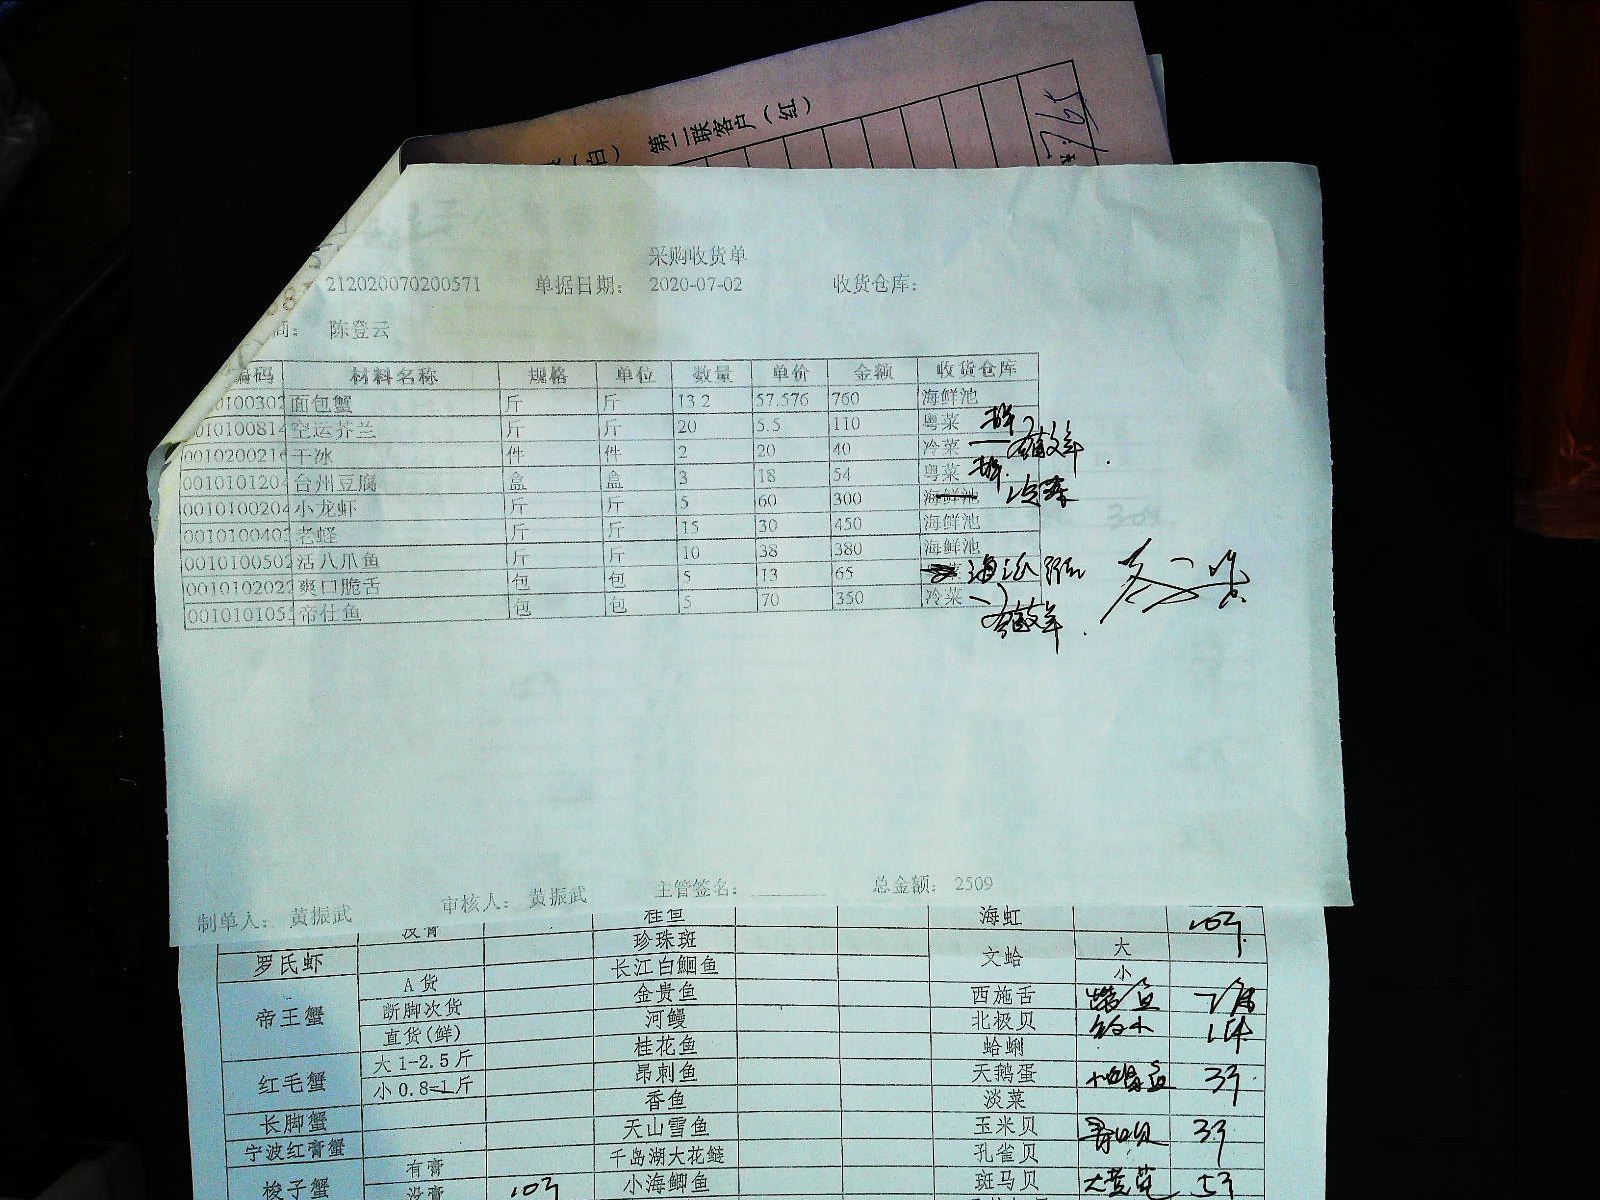 （白） 第二联客户（红）
765
采购收货单
212020070200571 单据日期： 2020-07-02 收货仓库：
商： 陈登云
编码 材料名称 规格 单位 数量 单价 金额 收货仓库
0010100302 面包蟹 斤 斤 13.2 57.576 760 海鲜池
0010100814 空运芥兰 斤 斤 20 5.5 110 粤菜
0010200216 干冰 件 件 2 20 40 冷菜
0010101204 台州豆腐 盒 盒 3 18 54 粤菜
0010100204 小龙虾 斤 斤 5 60 300 海鲜池
0010100403 老蛏 斤 斤 15 30 450 海鲜池
0010100502 活八爪鱼 斤 斤 10 38 380 海鲜池
0010102022 爽口脆舌 包 包 5 13 65
001010105 帝仕鱼 包 包 5 70 350 冷菜
制单人： 黄振武 审核人： 黄振武 主管签名： 总金额： 2509
没膏 桂鱼 海虹
罗氏虾 珍珠斑 文蛤 大
长江白鮰鱼 小
帝王蟹 A货 金贵鱼 西施舌
断脚次货 河鳗 北极贝
直货(鲜) 桂花鱼 蛤蜊
红毛蟹 大1-2.5斤 昂刺鱼 天鹅蛋
小0.8-1斤 香鱼 淡菜
长脚蟹 天山雪鱼 玉米贝
宁波红膏蟹 千岛湖大花鲢 孔雀贝
梭子蟹 有膏 小海鲫鱼 斑马贝
没膏